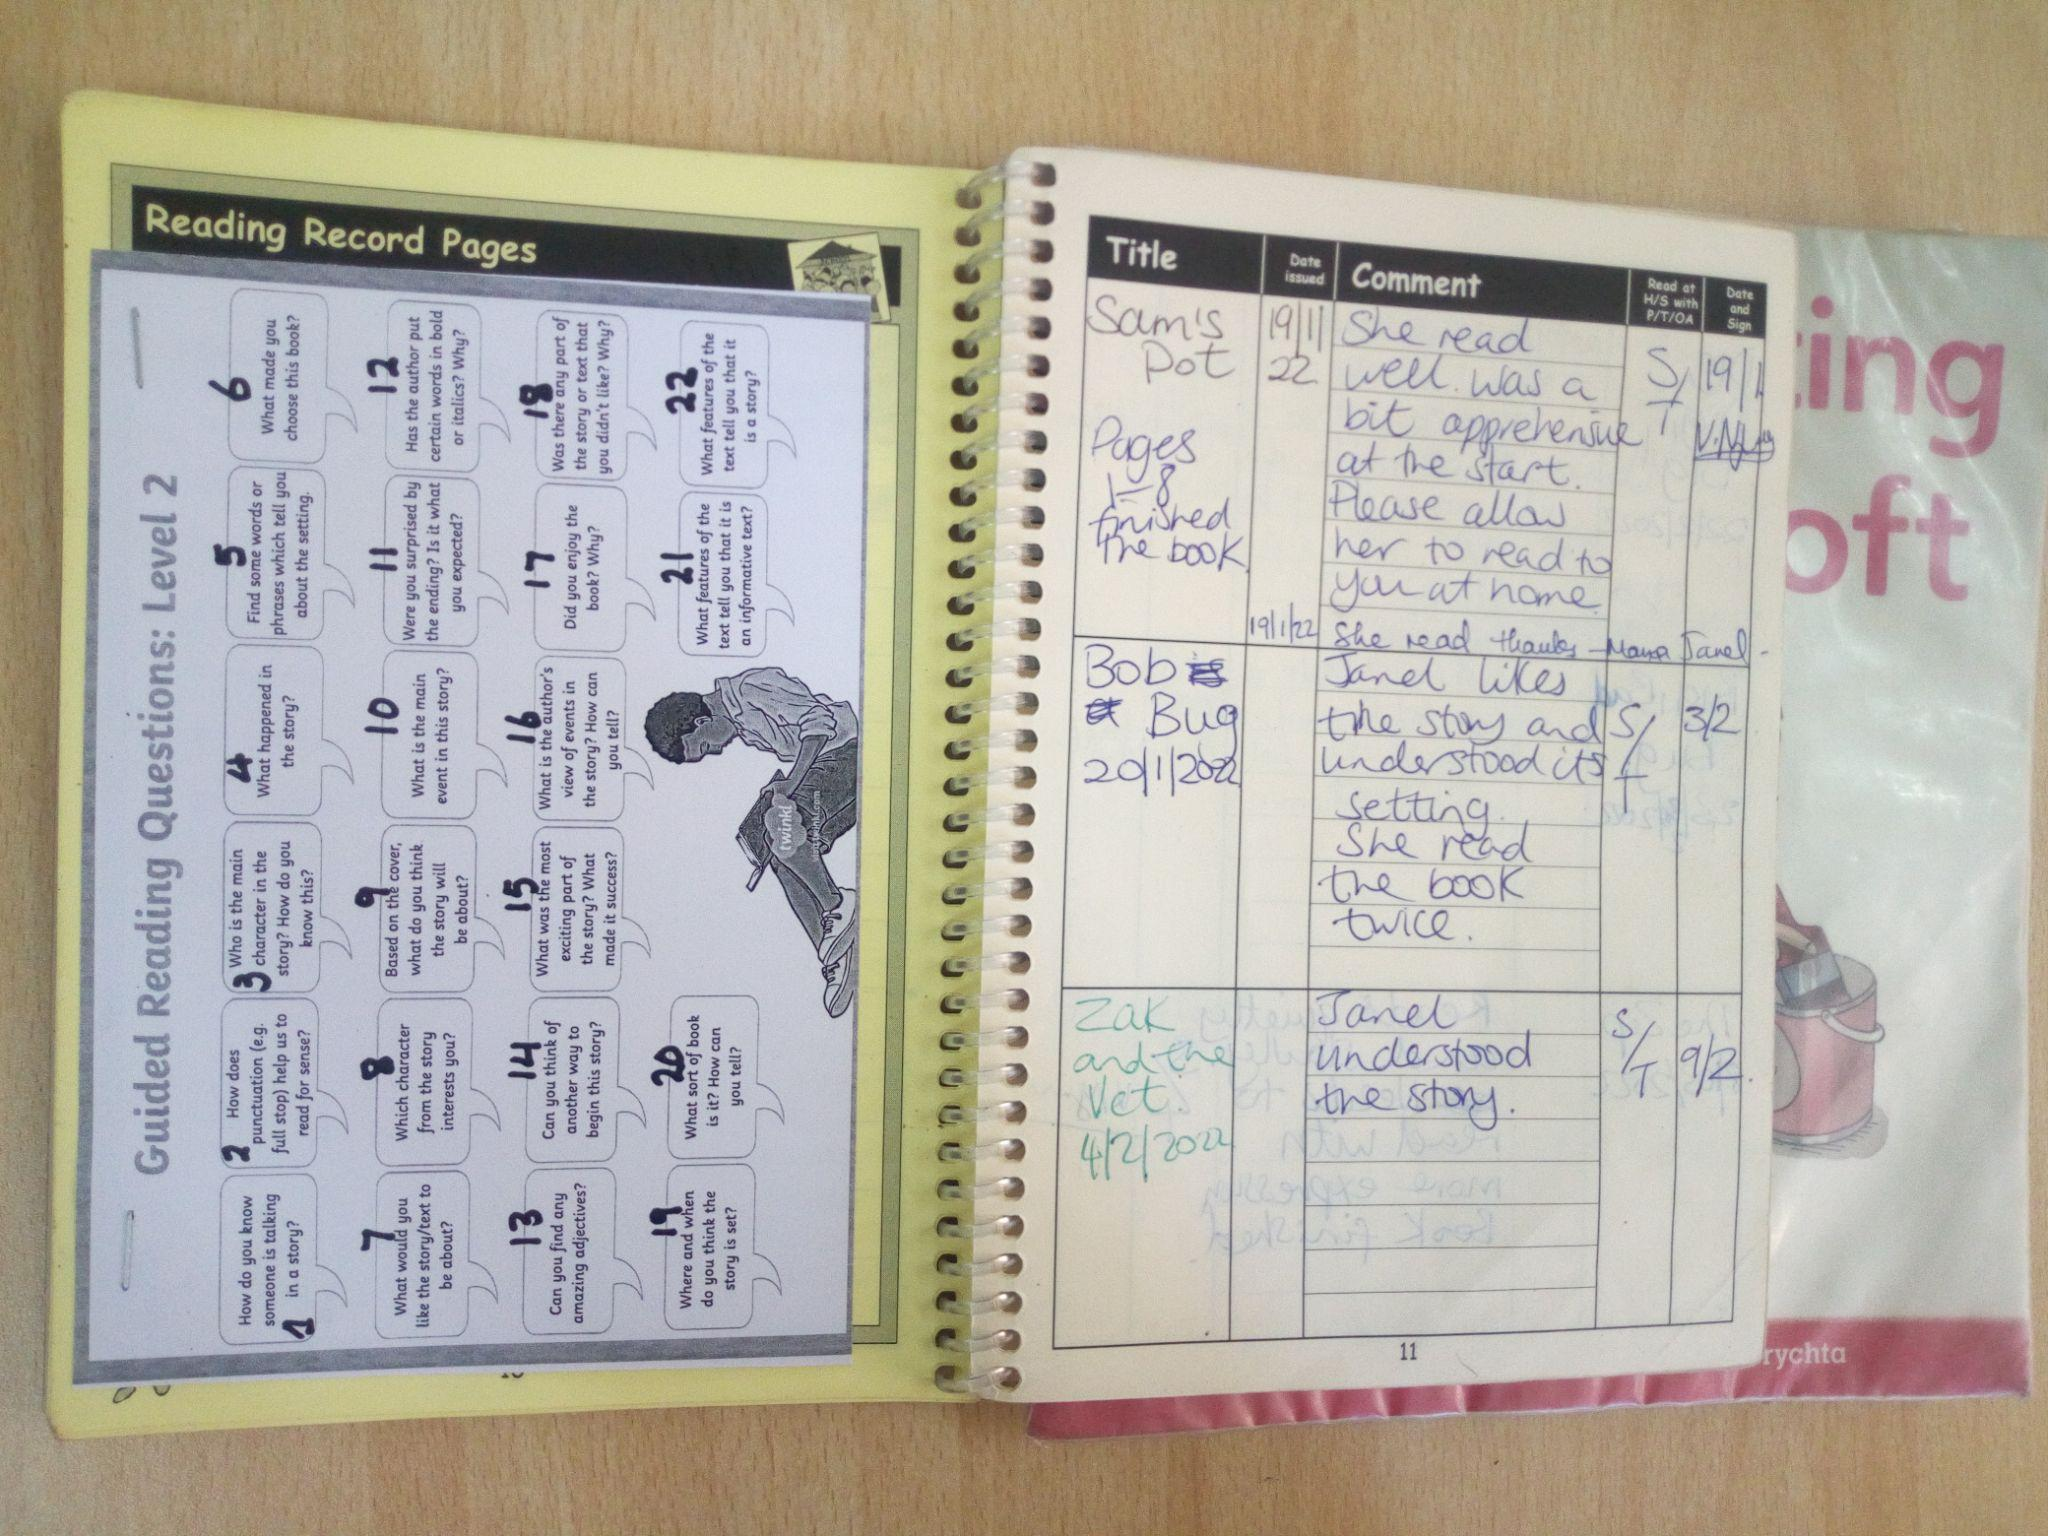 Reading Record Pages
Guided Reading Questions: Level 2
1
How do you know
someone is talking
in a story?
2
How does
punctuation (e.g.
full stop) help us to
read for sense?
3
Who is the main
character in the
story? How do you
know this?
4
What happened in
the story?
5
Find some words or
phrases which tell you
about the setting.
6
What made you
choose this book?
7
What would you
like the story/text to
be about?
8
Which character
from the story
interests you?
9
Based on the cover,
what do you think
the story will
be about?
10
What is the main
event in this story?
11
Were you surprised by
the ending? Is it what
you expected?
12
Has the author put
certain words in bold
or italics? Why?
13
Can you find any
amazing adjectives?
14
Can you think of
another way to
begin this story?
15
What was the most
exciting part of
the story? What
made it success?
16
What is the author's
view of events in
the story? How can
you tell?
17
Did you enjoy the
book? Why?
18
Was there any part of
the story or text that
you didn't like? Why?
19
Where and when
do you think the
story is set?
20
What sort of book
is it? How can
you tell?
21
What features of the
text tell you that it is
an informative text?
22
What features of the
text tell you that it
is a story?
twinkl
Title
Date
issued
Comment
Read at
H/S with
P/T/OA
Date
and
Sign
Sam's
Pot
Pages
1-8
finished
the book
19/1/
22
19/1/22
She read
well. was a
bit apprehensive
at the start.
Please allow
her to read to
you at home.
She read thanks - Mama Janel -
S/T
19/1
Bob
Bug
20/1/2022
Janel likes
the story and
understood its
setting.
She read
the book
twice.
S/T
3/2
Zak
and the
Vet.
4/2/2022
Janel
understood
the story.
S/T
9/2.
11
ing
oft
rychta